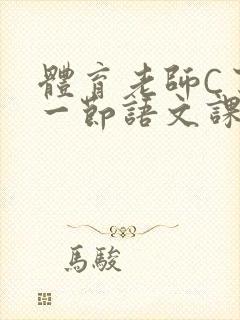 體育老師C
一節語文課
馬駿